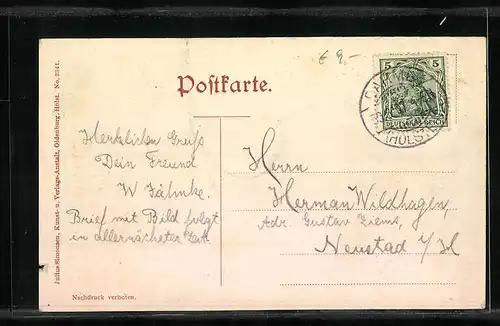 € 9,-
Postkarte.
5 5
DEUTSCHES REICH
(HOLST.)
Herzlichen Gruß
Dein Freund
W Jähnke.
Brief mit Bild folgt
in allernächster Zeit
Herrn
Herman Wildhagen,
Adr. Gustav Ziems,
Neustad i/H
Julius Simonsen, Kunst- u. Verlags-Anstalt, Oldenburg, Holst. No. 2341.
Nachdruck verboten.